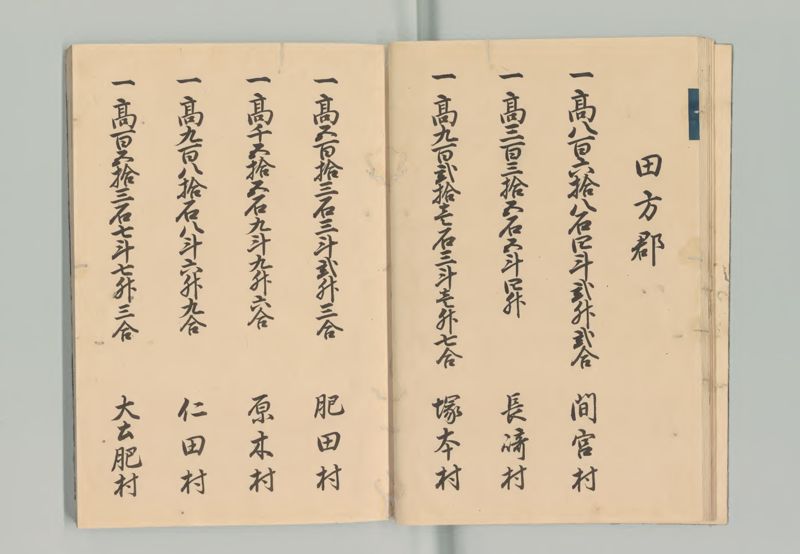 田方郡
一高八百六拾八石四斗弐舛弐合 間宮村
一高三百三拾五石五斗四舛 長﨑村
一高九百弐拾壱石三斗壱舛七合 塚本村
一高五百拾三石三斗弐舛三合 肥田村
一高千五拾五石九斗九舛六合 原木村
一高九百八拾石八斗六舛九合 仁田村
一高百五拾三石七斗七舛三合 大土肥村